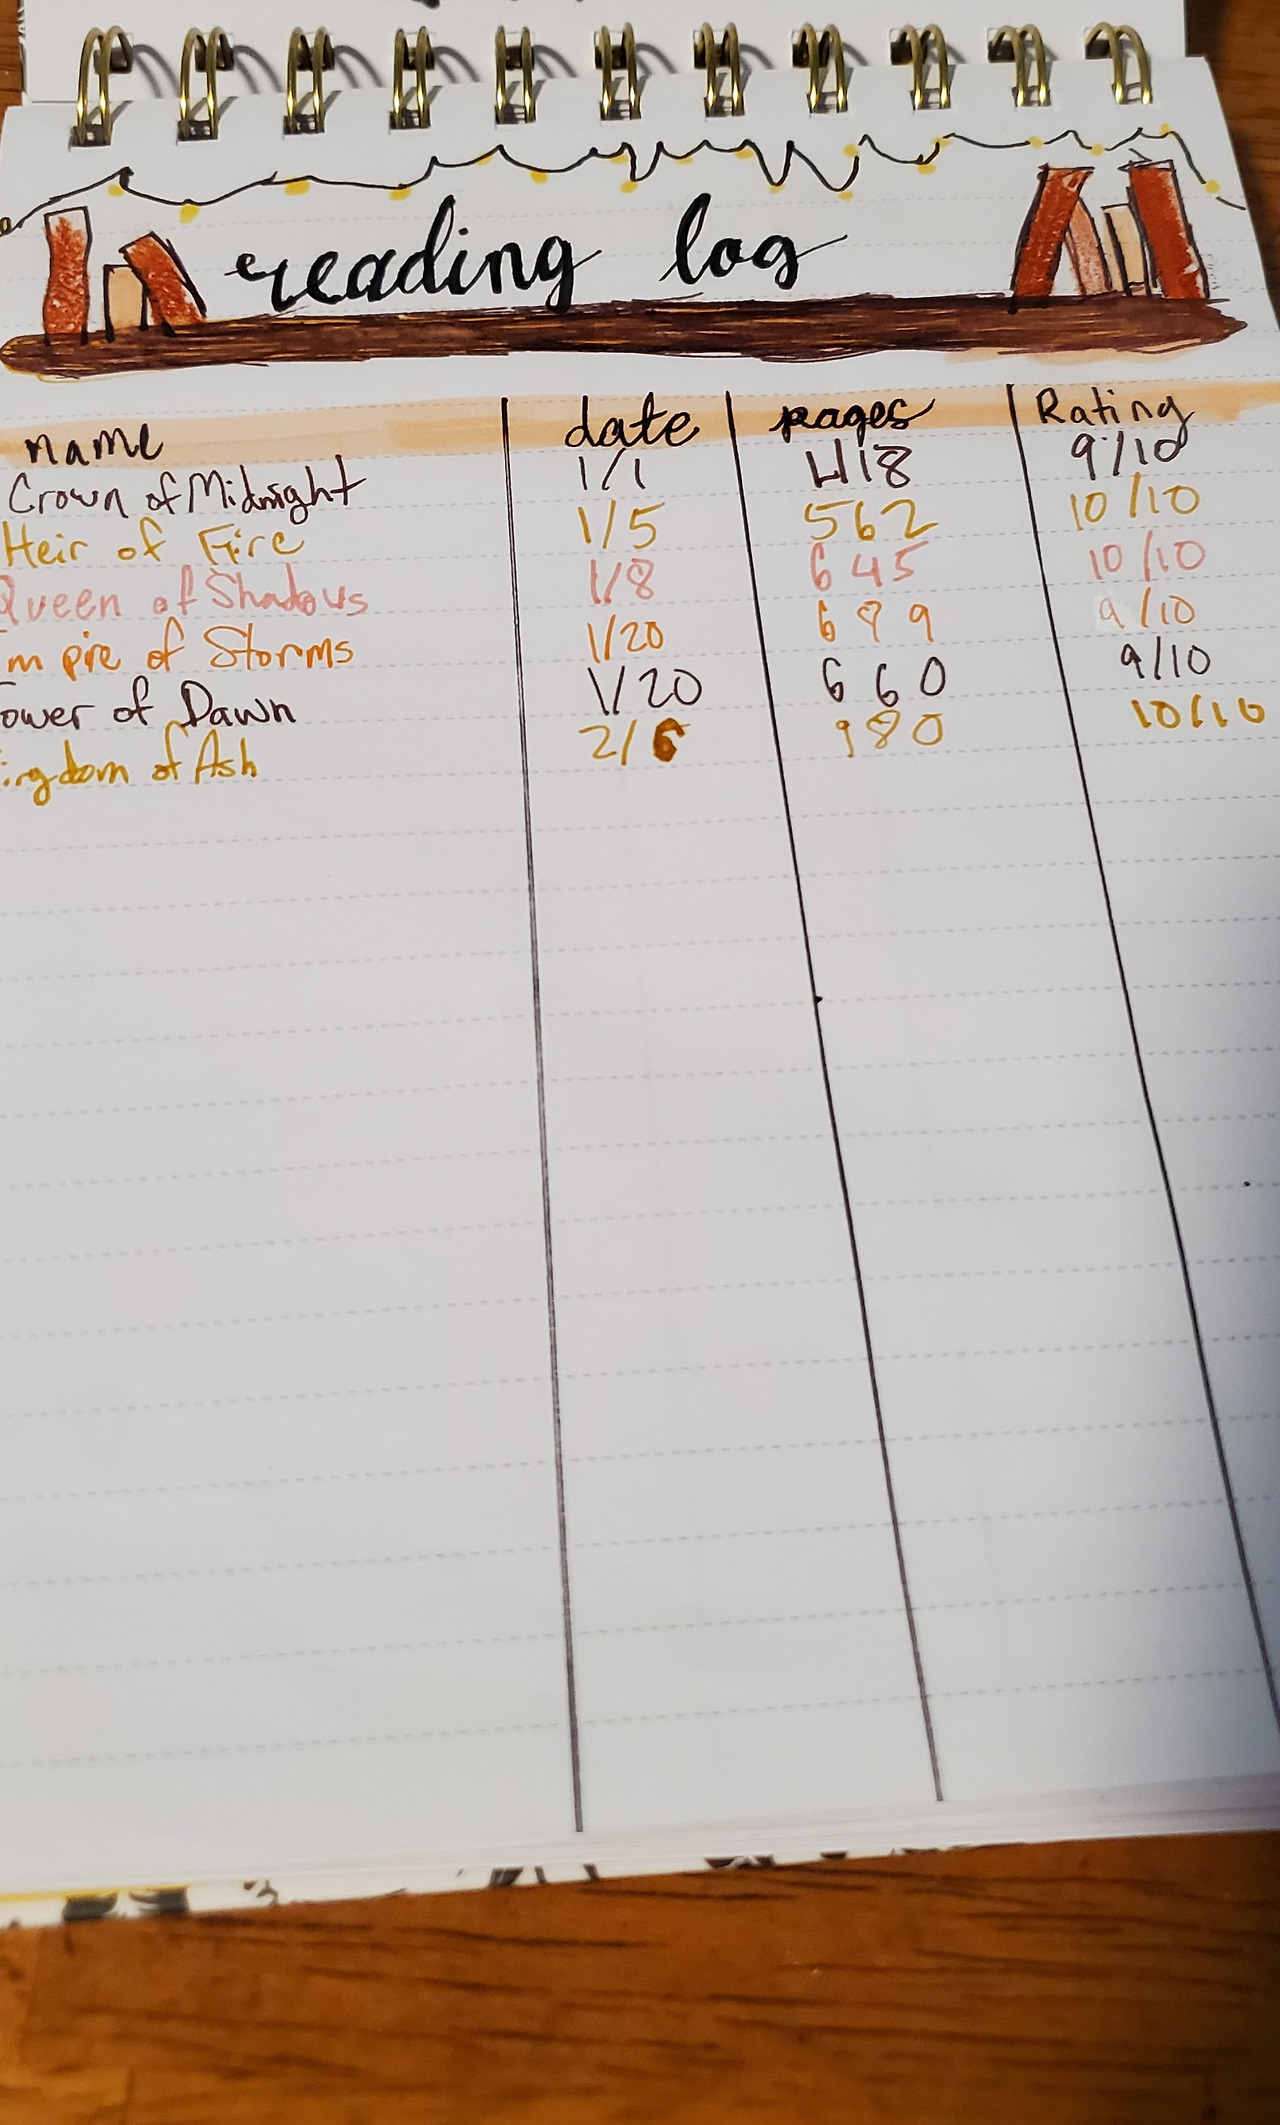 reading log
name date pages Rating
Crown of Midnight 1/1 418 9/10
Heir of Fire 1/5 562 10/10
Queen of Shadows 1/8 645 10/10
Empire of Storms 1/20 689 9/10
ower of Dawn 1/20 660 9/10
ingdom of Ash 2/6 980 10/10